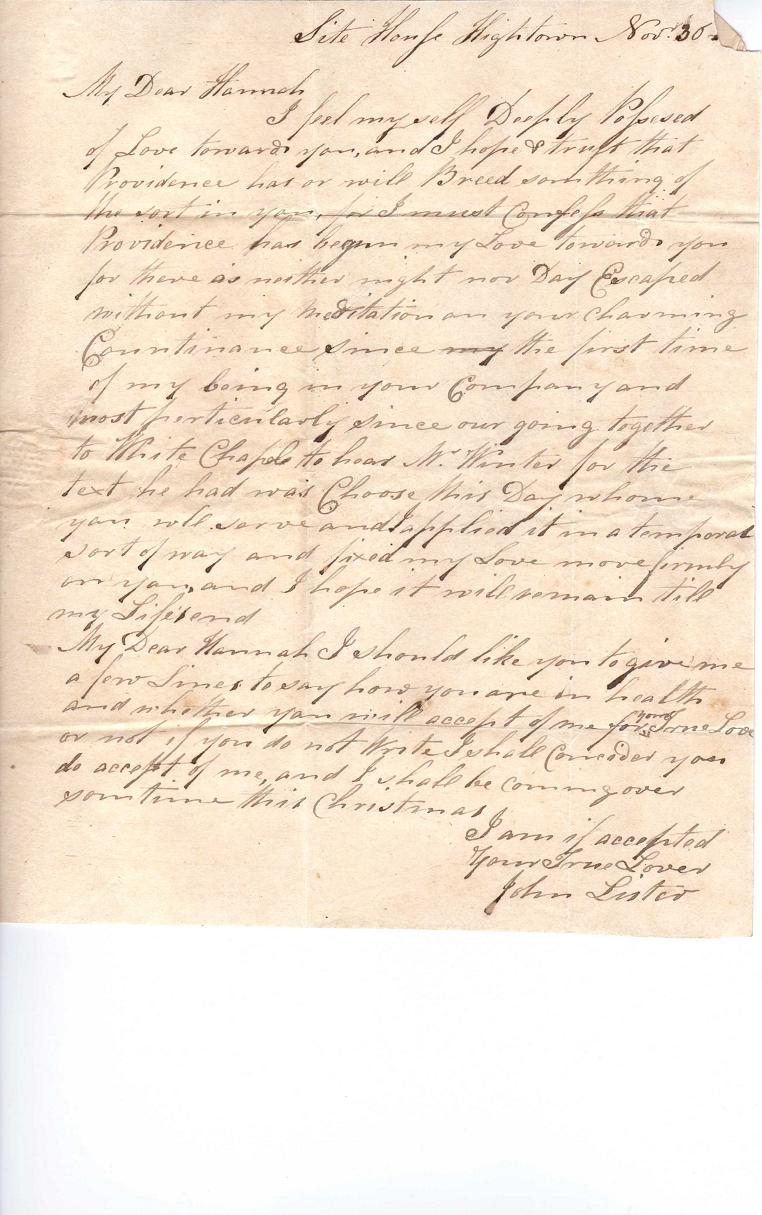 Site House Hightown Nov. 30
My Dear Hannah
I feel my self Deeply Possesed
of Love towards you, and I hope & trust that
Providence has or will Breed somthing of
the sort in you, for I must Confess that
Providence has begun my Love towards you
for there as neither night nor Day Escaped
without my meditation on your charming
Countinance since my the first time
of my being in your Company and
most particularly since our going together
to White Chaple to hear Mr. Winter for the
text he had was Choose this Day whome
you will serve and I applied it in a temporal
sort of way and fixed my Love more firmly
on you, and I hope it will remain till
my Lifes end
My Dear Hannah I should like you to give me
a few Lines to say how you are in health
and whether you will accept of me for your True Love
or not if you do not Write I shall Concider you
do accept of me, and I shall be coming over
somtime this Christmas
I am if accepted
Your True Lover
John Lister